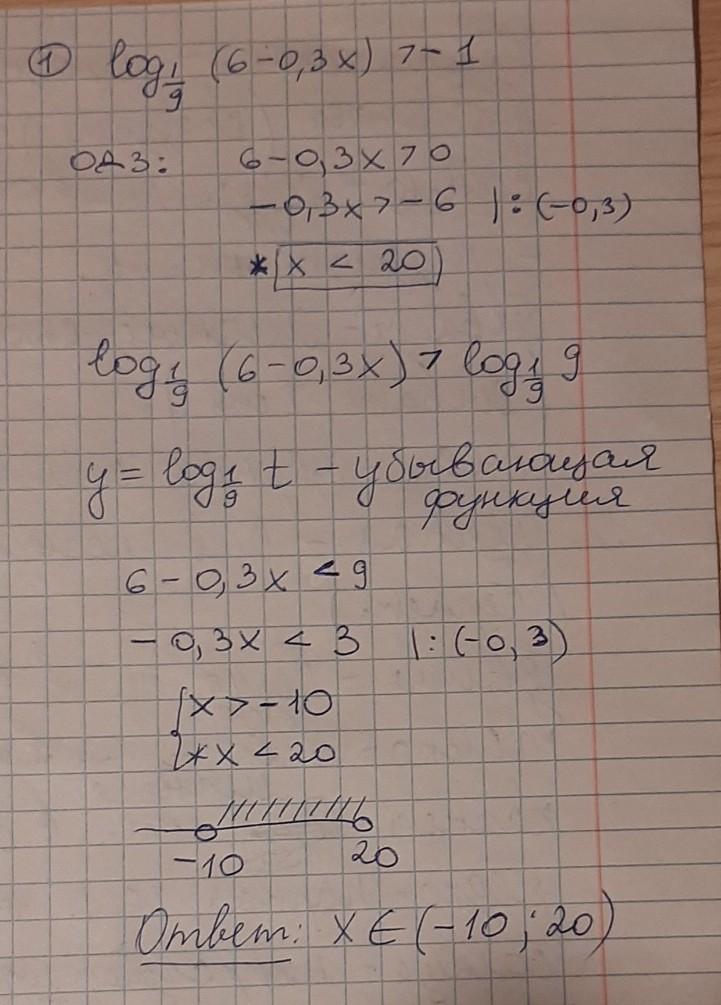 ① log₁/₉ (6-0,3x) > -1
ОДЗ: 6-0,3x>0
-0,3x>-6 |:(-0,3)
* x < 20
log₁/₉ (6-0,3x) > log₁/₉ 9
y = log₁/₉ t - убывающая
функция
6-0,3x < 9
-0,3x < 3 |:(-0,3)
{ x > -10
* x < 20
-10 20
Ответ: x ∈ (-10; 20)